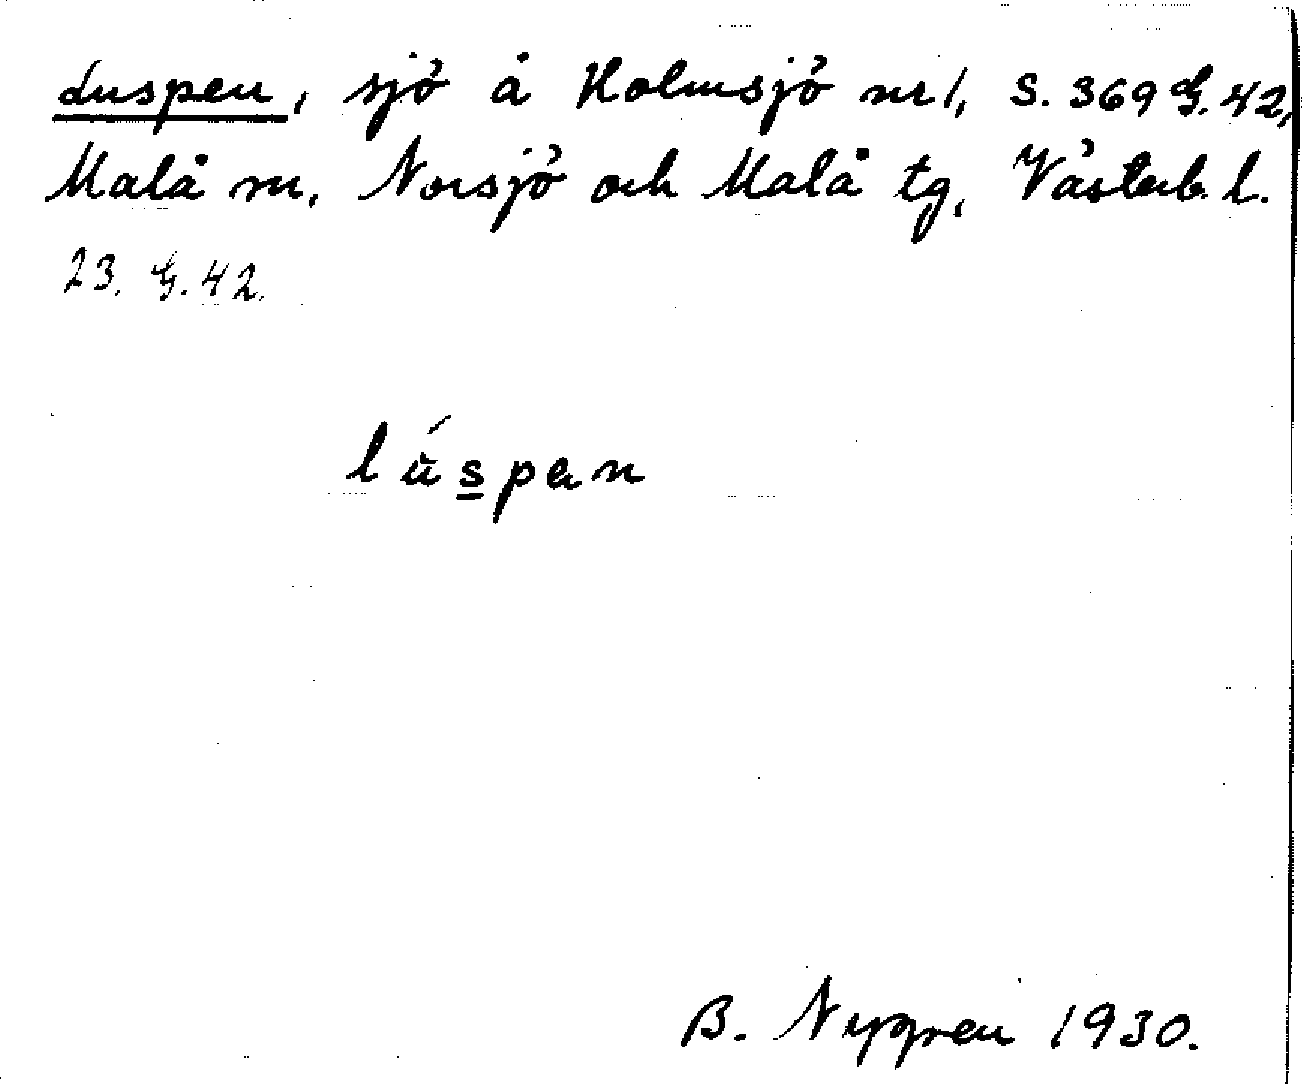 Luspen, sjö å Holmsjö nr 1, S. 369 G. 42,
Malå sn. Norsjö och Malå tg, Västerb. l.
23. G. 42.
lúspen
B. Nygren 1930.